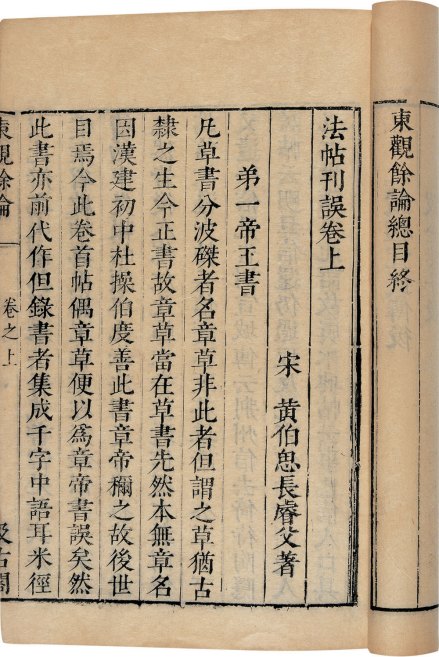 東觀餘論總目終
法帖刊誤卷上
宋 黃伯思長睿父著
弟一帝王書
凡草書分波磔者名章草非此者但謂之草猶古
隸之生今正書故章草當在草書先然本無章名
因漢建初中杜操伯度善此書章帝稱之故後世
目焉今此卷首帖偶章草便以爲章帝書誤矣然
此書亦前代作但錄書者集成千字中語耳米徑
東觀餘論 卷之上 汲古閣